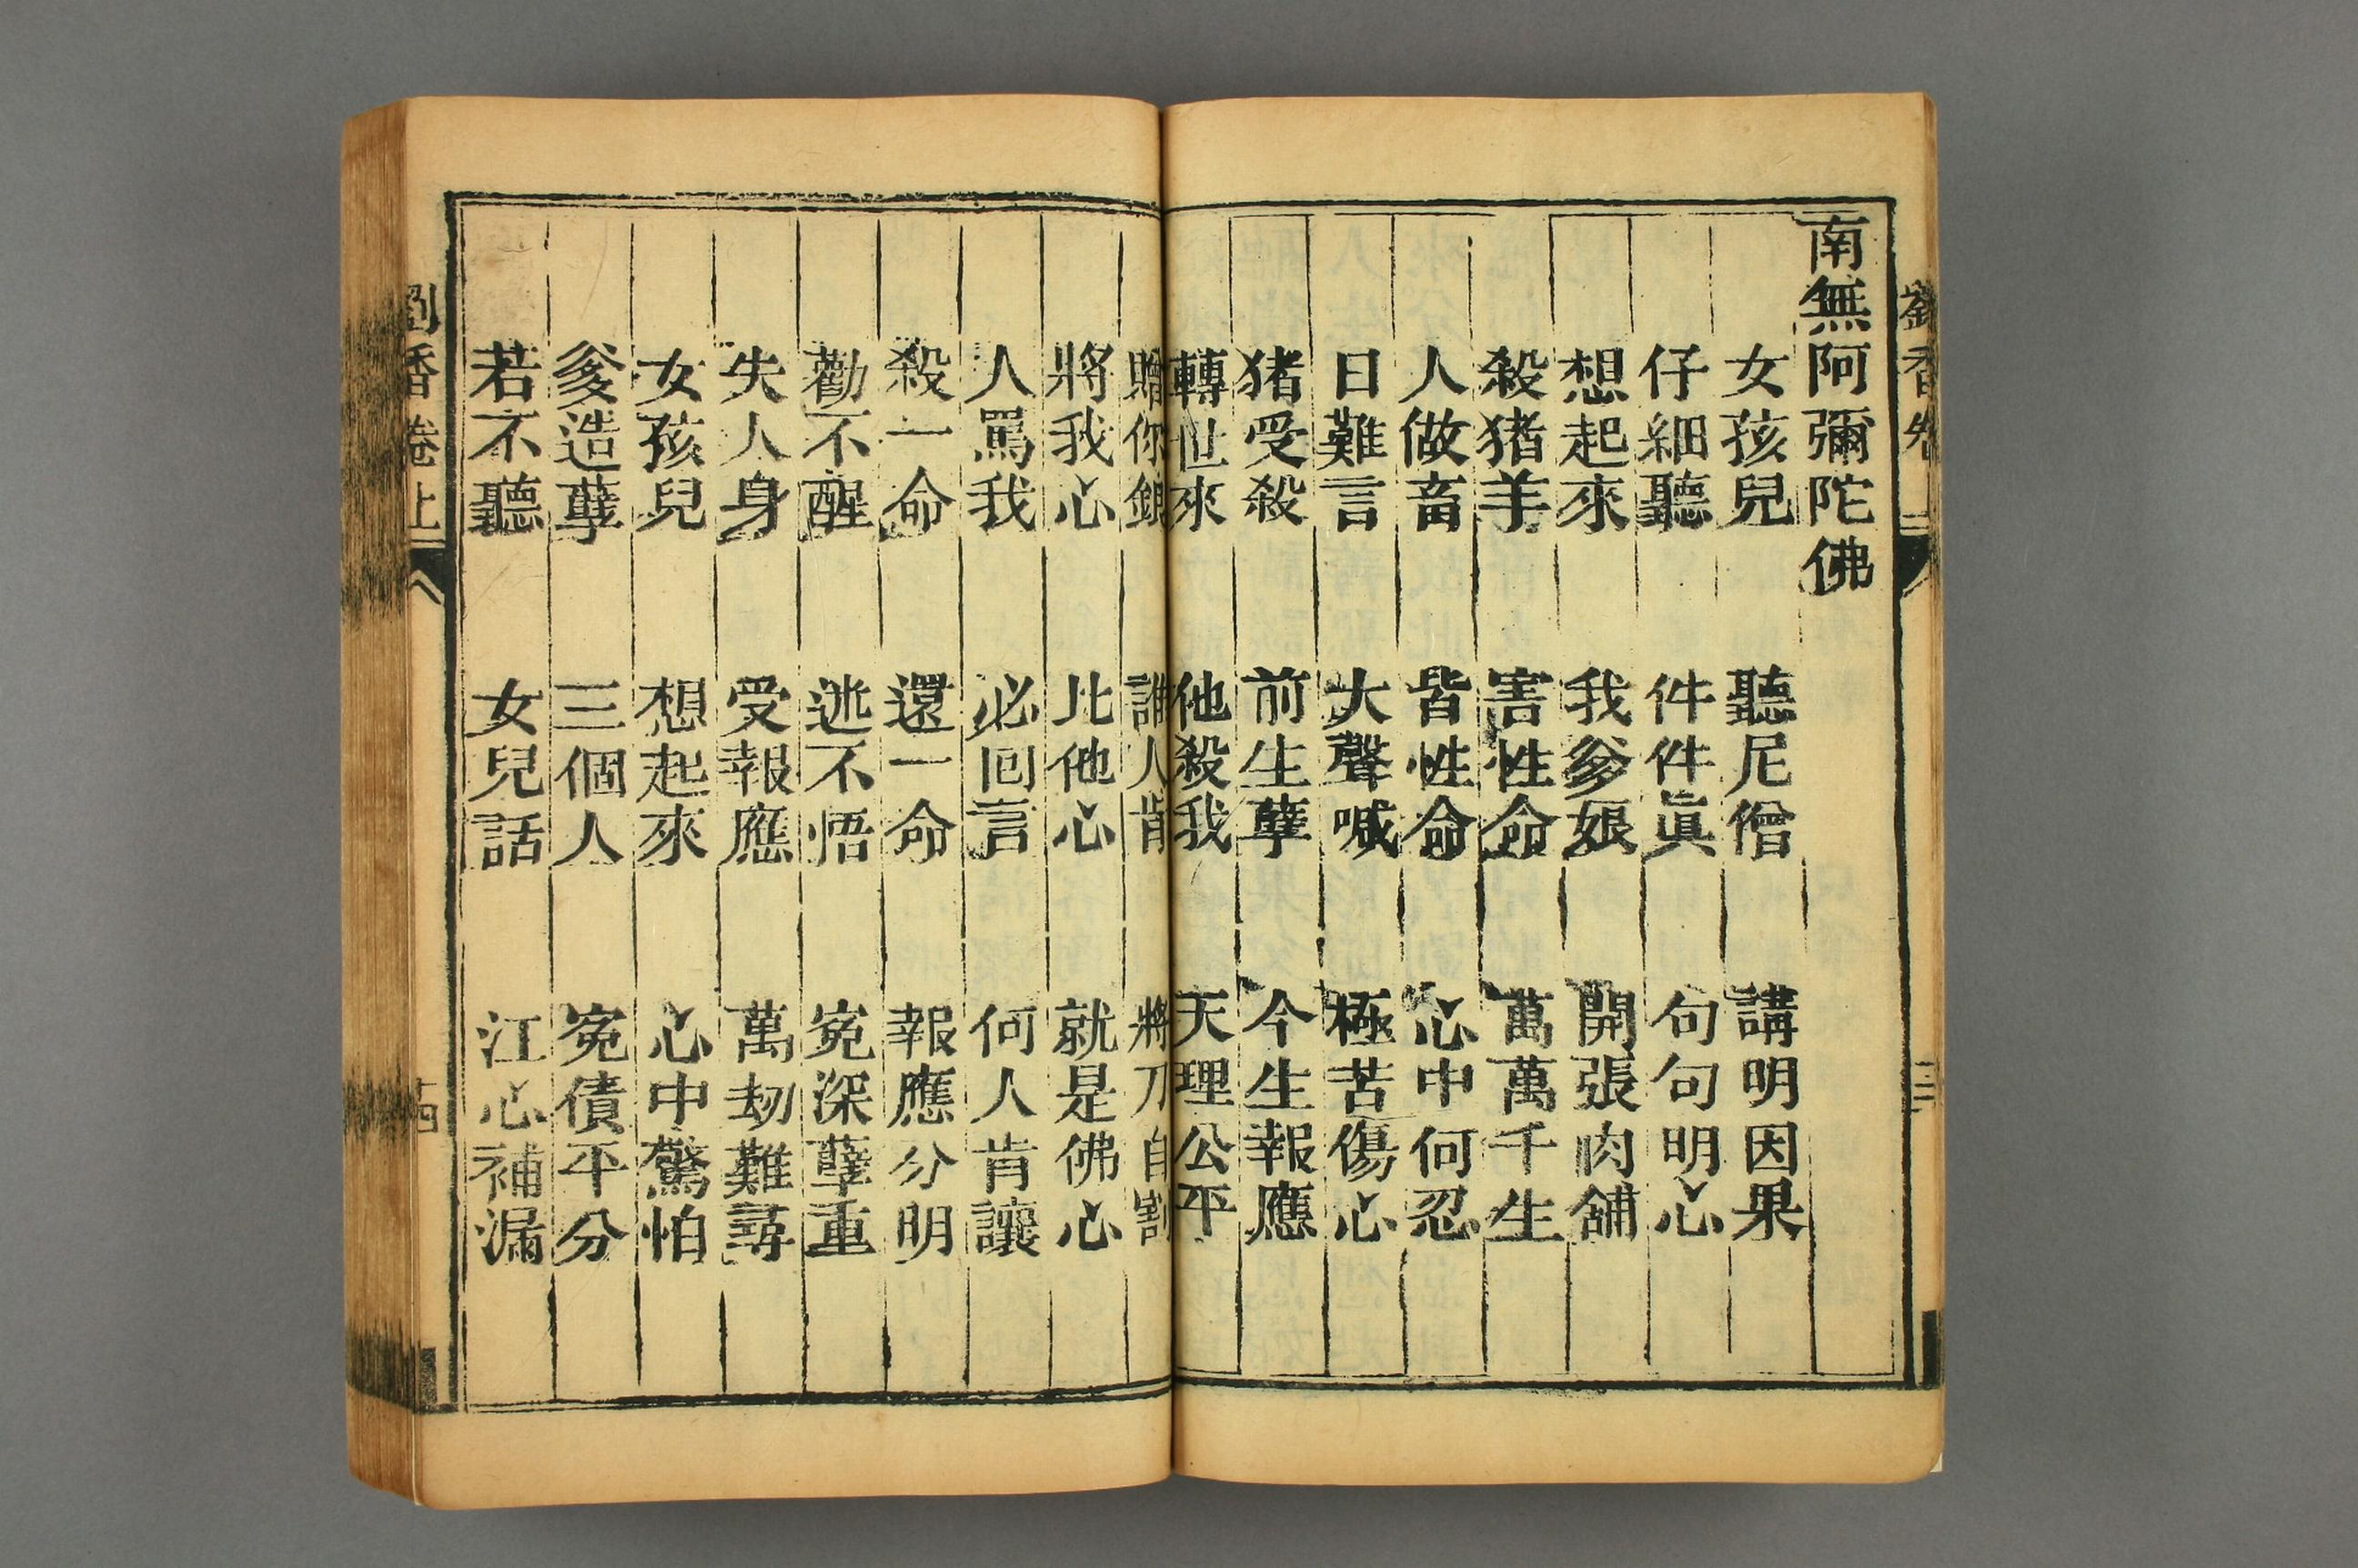 南無阿彌陀佛
女孩兒 聽尼僧 講明因果
仔細聽 件件眞 句句明心
想起來 我爹娘 開張肉舖
殺猪羊 害性命 萬萬千生
人做畜 皆性命 心中何忍
日難言 大聲喊 極苦傷心
猪受殺 前生孽 今生報應
轉世來 他殺我 天理公平
贈你銀 誰人肯 將刀自割
將我心 比他心 就是佛心
人罵我 必回言 何人肯讓
殺一命 還一命 報應分明
勸不醒 逃不悟 寃深孽重
失人身 受報應 萬刼難尋
女孩兒 想起來 心中驚怕
爹造孽 三個人 寃債平分
若不聽 女兒話 江心補漏
劉香卷上